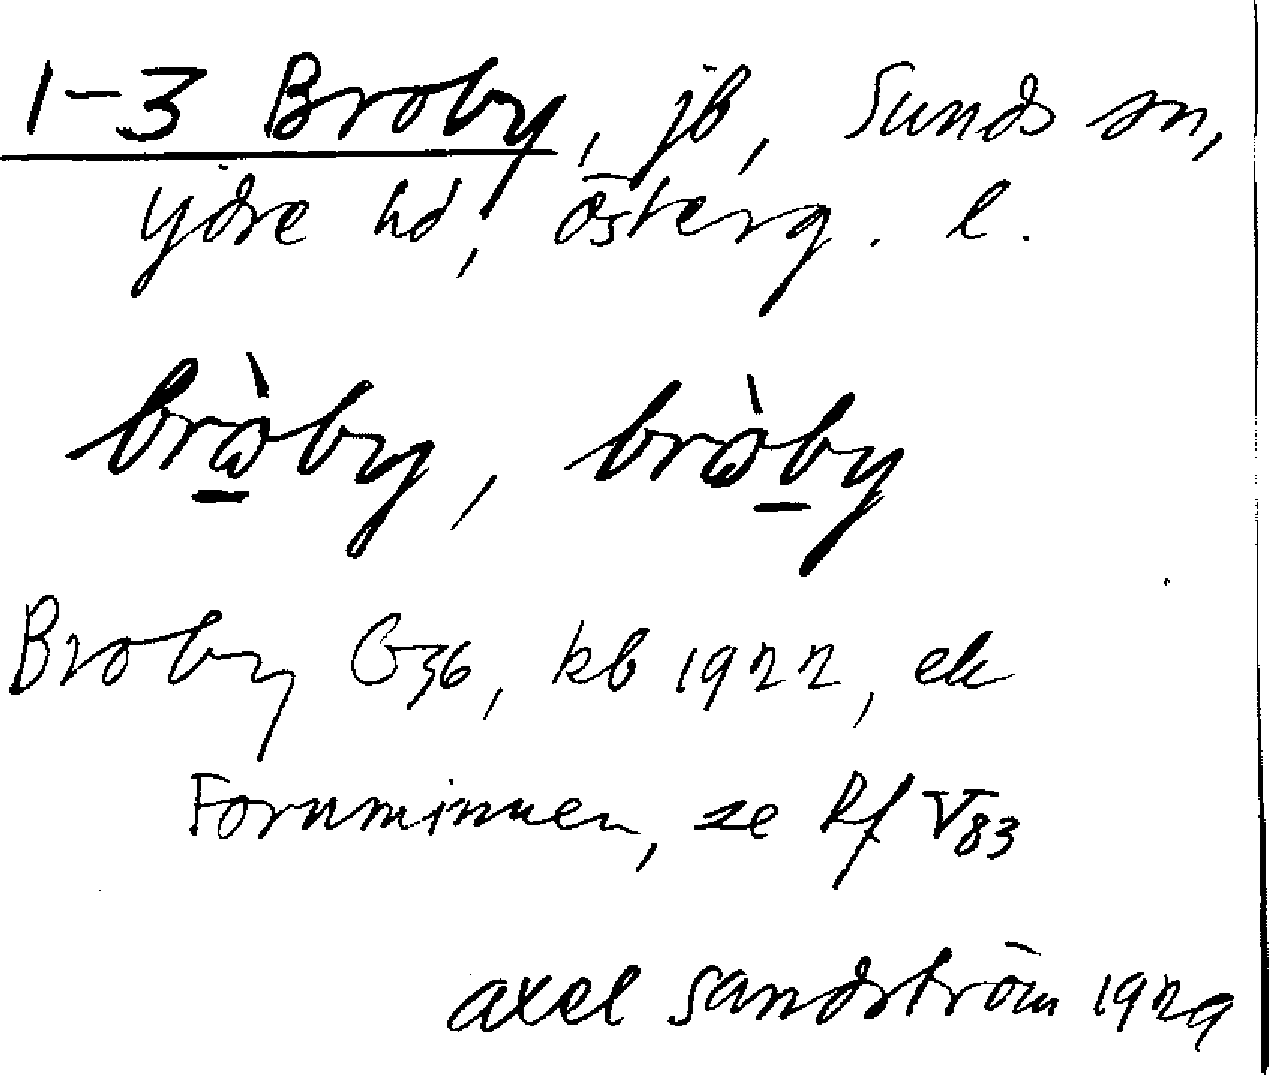 1-3 Broby, jb, Sunds sn,
Ydre hd, Österg. l.
brὼ̱by, brὼḇy
Broby G36, kb 1922, ek
Fornminnen, se Rf V83
Axel Sandström 1929